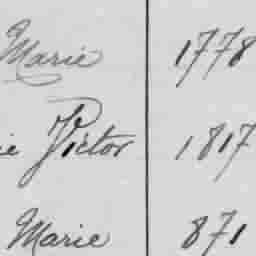 Marie 1778
ie Victor 1817
Marie 871